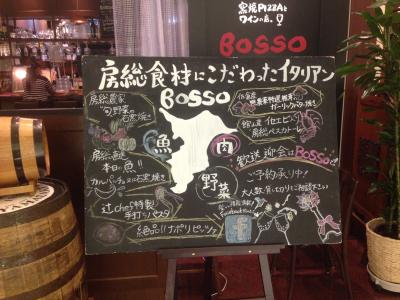 窯焼PIZZAと
ワインの店。
BOSSO
房総食材にこだわったイタリアン
BOSSO
房総農家
旬野菜の
石窯焼き
魚
肉
野菜
房総直送
本日の魚!!
カルパッチョ
辻chef特製
手打ちパスタ
絶品!!ナポリピッツァ
ガーリック
館山産 伊セエビと
房総ペスカトーレ
歓送迎会はBOSSOで
ご予約承り中!
大人数、貸し切りもご相談下さい
facebook
f